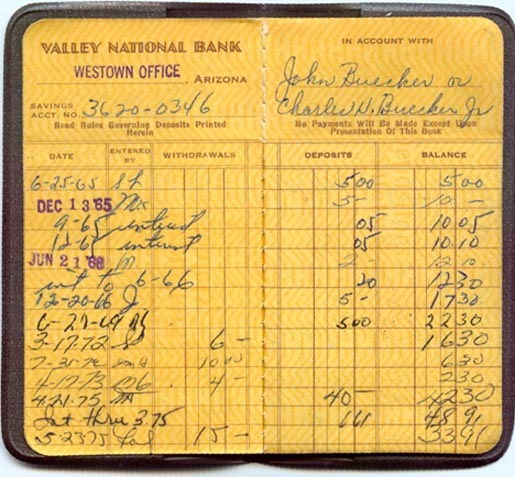 VALLEY NATIONAL BANK
WESTOWN OFFICE, ARIZONA
SAVINGS ACCT. NO. 3620-0346
Read Rules Governing Deposits Printed
Herein
IN ACCOUNT WITH
John Buecker or
Charles N. Buecker Jr
No Payments Will Be Made Except Upon
Presentation Of This Book
DATE ENTERED BY WITHDRAWALS DEPOSITS BALANCE
6-25-65 5 00 5 00
DEC 13 65 5 - 10 -
9-65 interest 05 10 05
12-65 interest 05 10 10
JUN 21 66 2 - 12 10
int to 6-66 20 12 30
12-20-66 5 - 17 30
6-27-69 5 00 22 30
3-17-72 6 - 16 30
7-31-72 10 00 6 30
4-17-73 4 - 2 30
4-21-75 40 - 42 30
Int thru 3 75 6 61 48 91
5 23 75 15 - 33 91